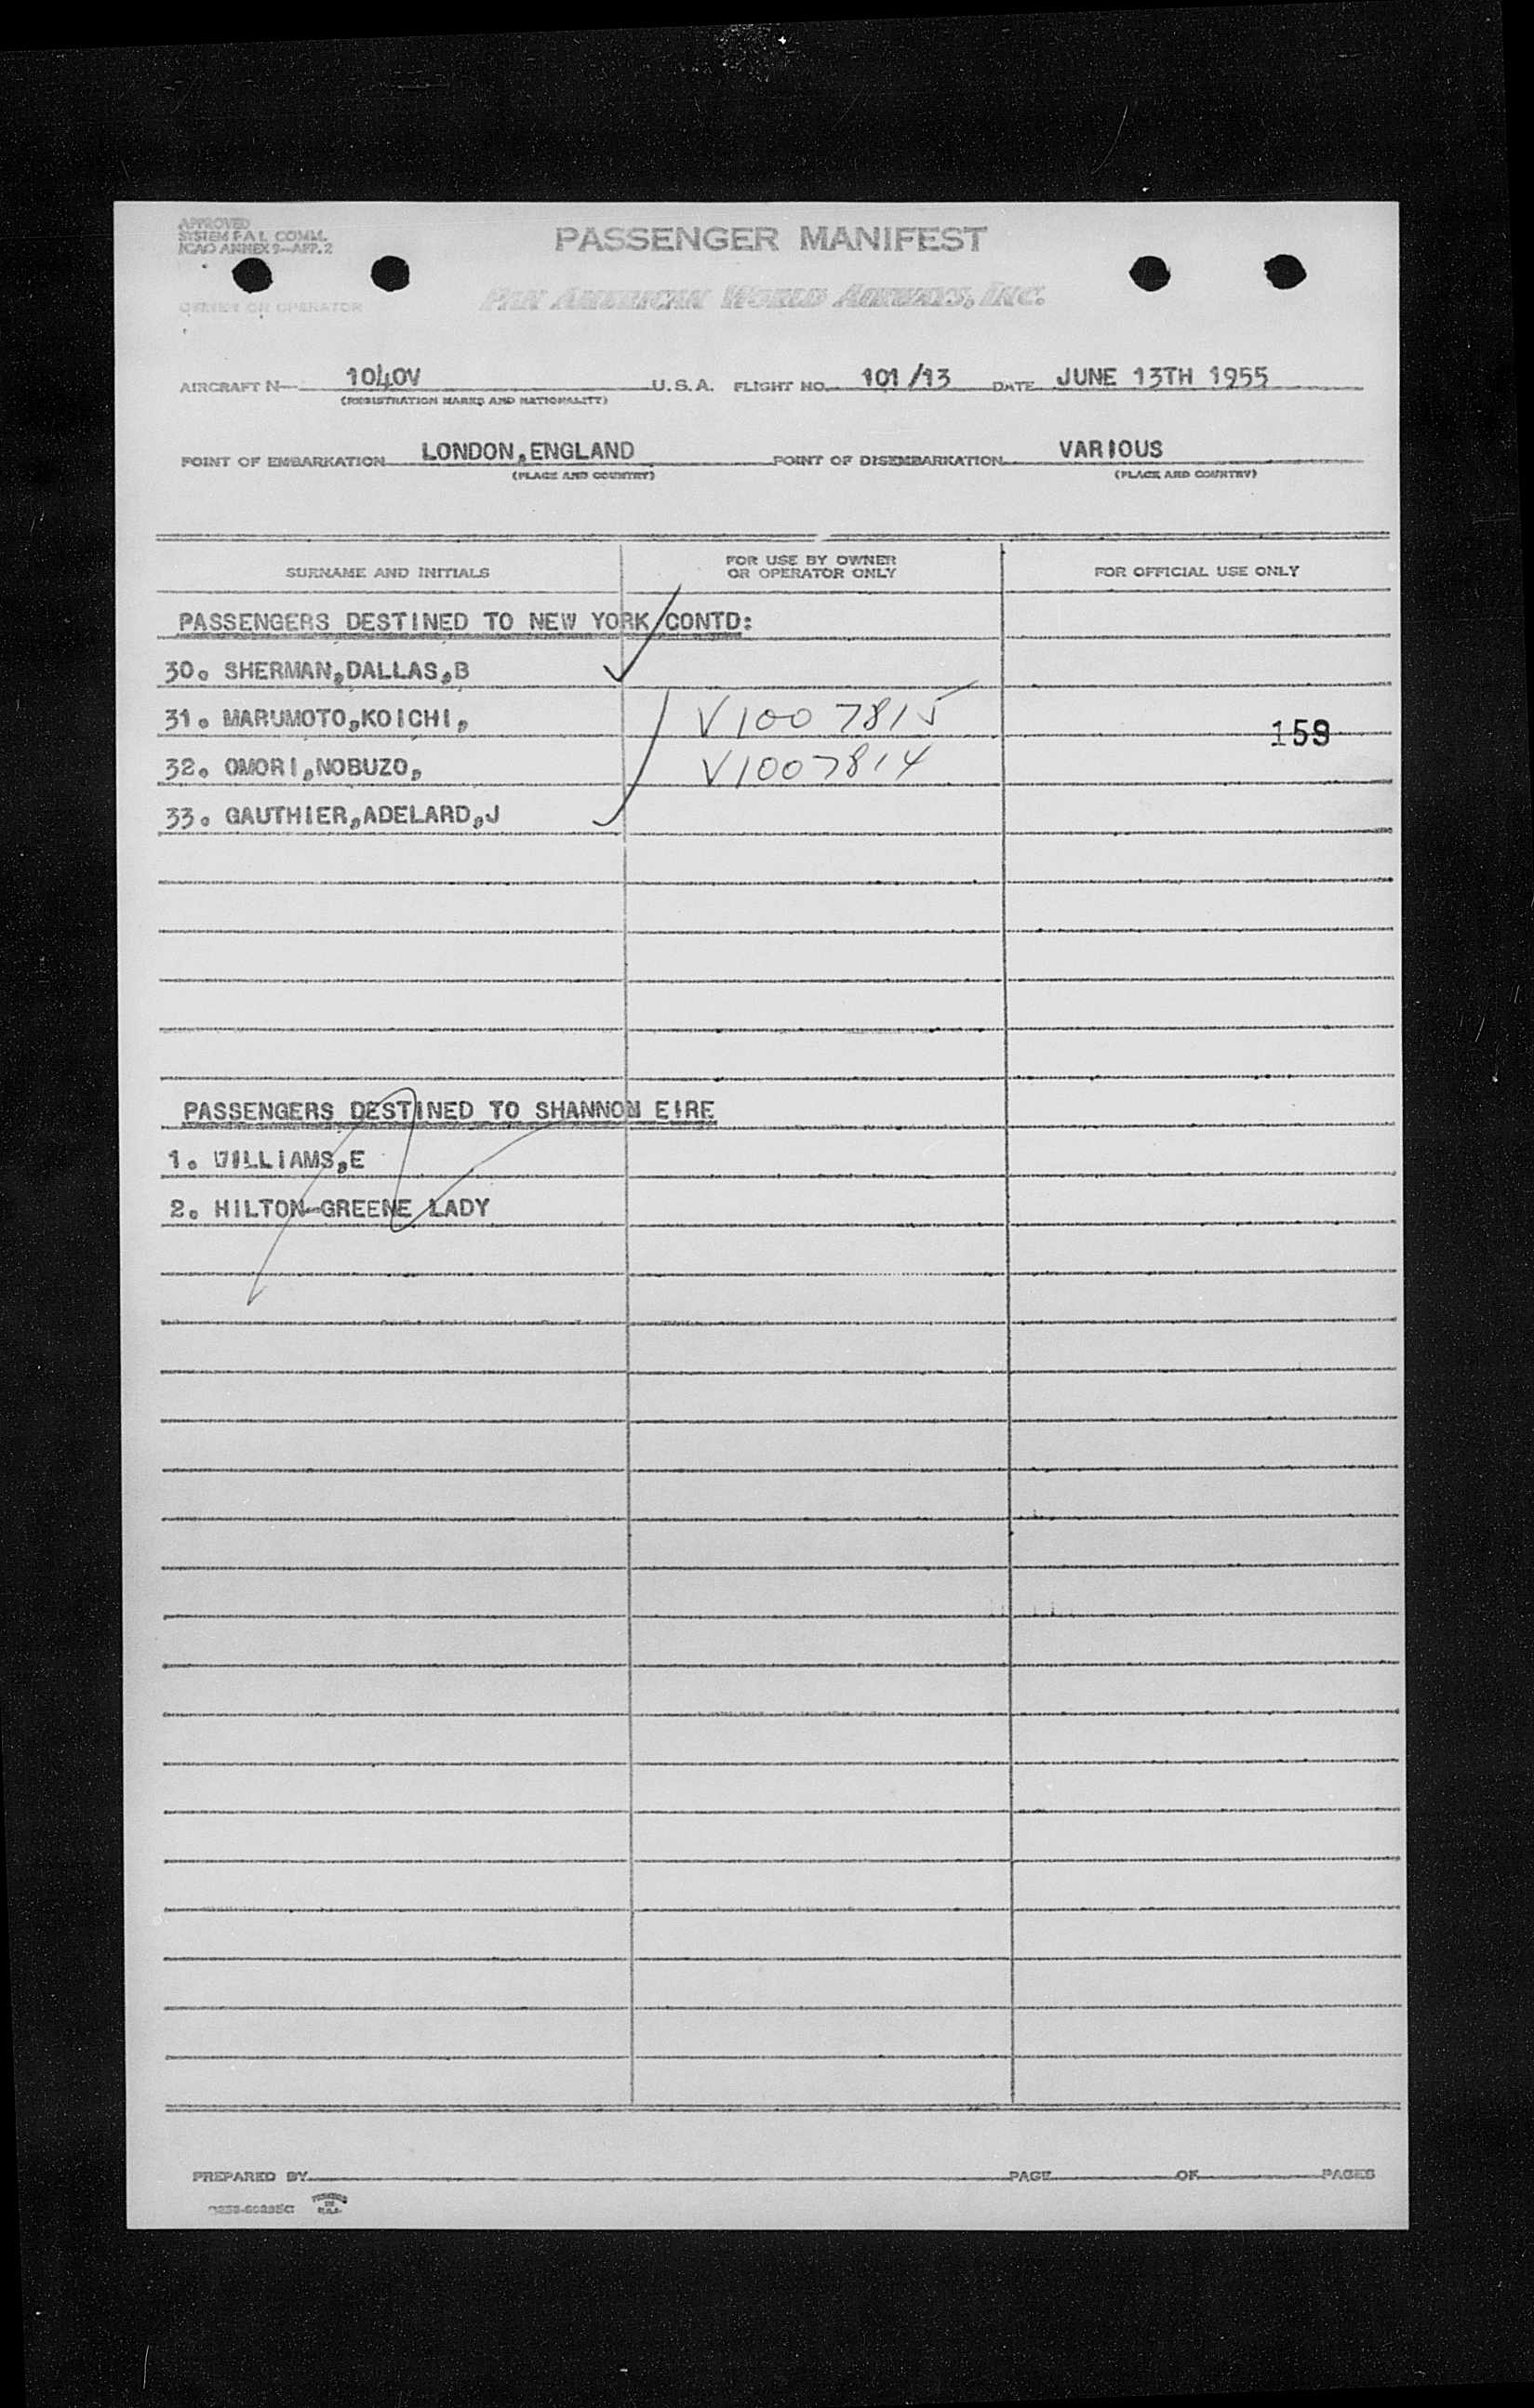 APPROVED
SYSTEM F A L COMM.
ICAO ANNEX 9—APP. 2
PASSENGER MANIFEST
OWNER OR OPERATOR
PAN AMERICAN WORLD AIRWAYS, INC.
AIRCRAFT N— 1040V U.S.A. FLIGHT NO. 101/13 DATE JUNE 13TH 1955
(REGISTRATION MARKS AND NATIONALITY)
POINT OF EMBARKATION LONDON,ENGLAND POINT OF DISEMBARKATION VARIOUS
(PLACE AND COUNTRY) (PLACE AND COUNTRY)
SURNAME AND INITIALS FOR USE BY OWNER OR OPERATOR ONLY FOR OFFICIAL USE ONLY
PASSENGERS DESTINED TO NEW YORK CONTD:
30. SHERMAN,DALLAS,B
31. MARUMOTO,KOICHI, V1007815
159
32. OMORI,NOBUZO, V1007814
33. GAUTHIER,ADELARD,J
PASSENGERS DESTINED TO SHANNON EIRE
1. WILLIAMS,E
2. HILTON-GREENE LADY
PREPARED BY PAGE OF PAGES
PRINTED IN U.S.A.